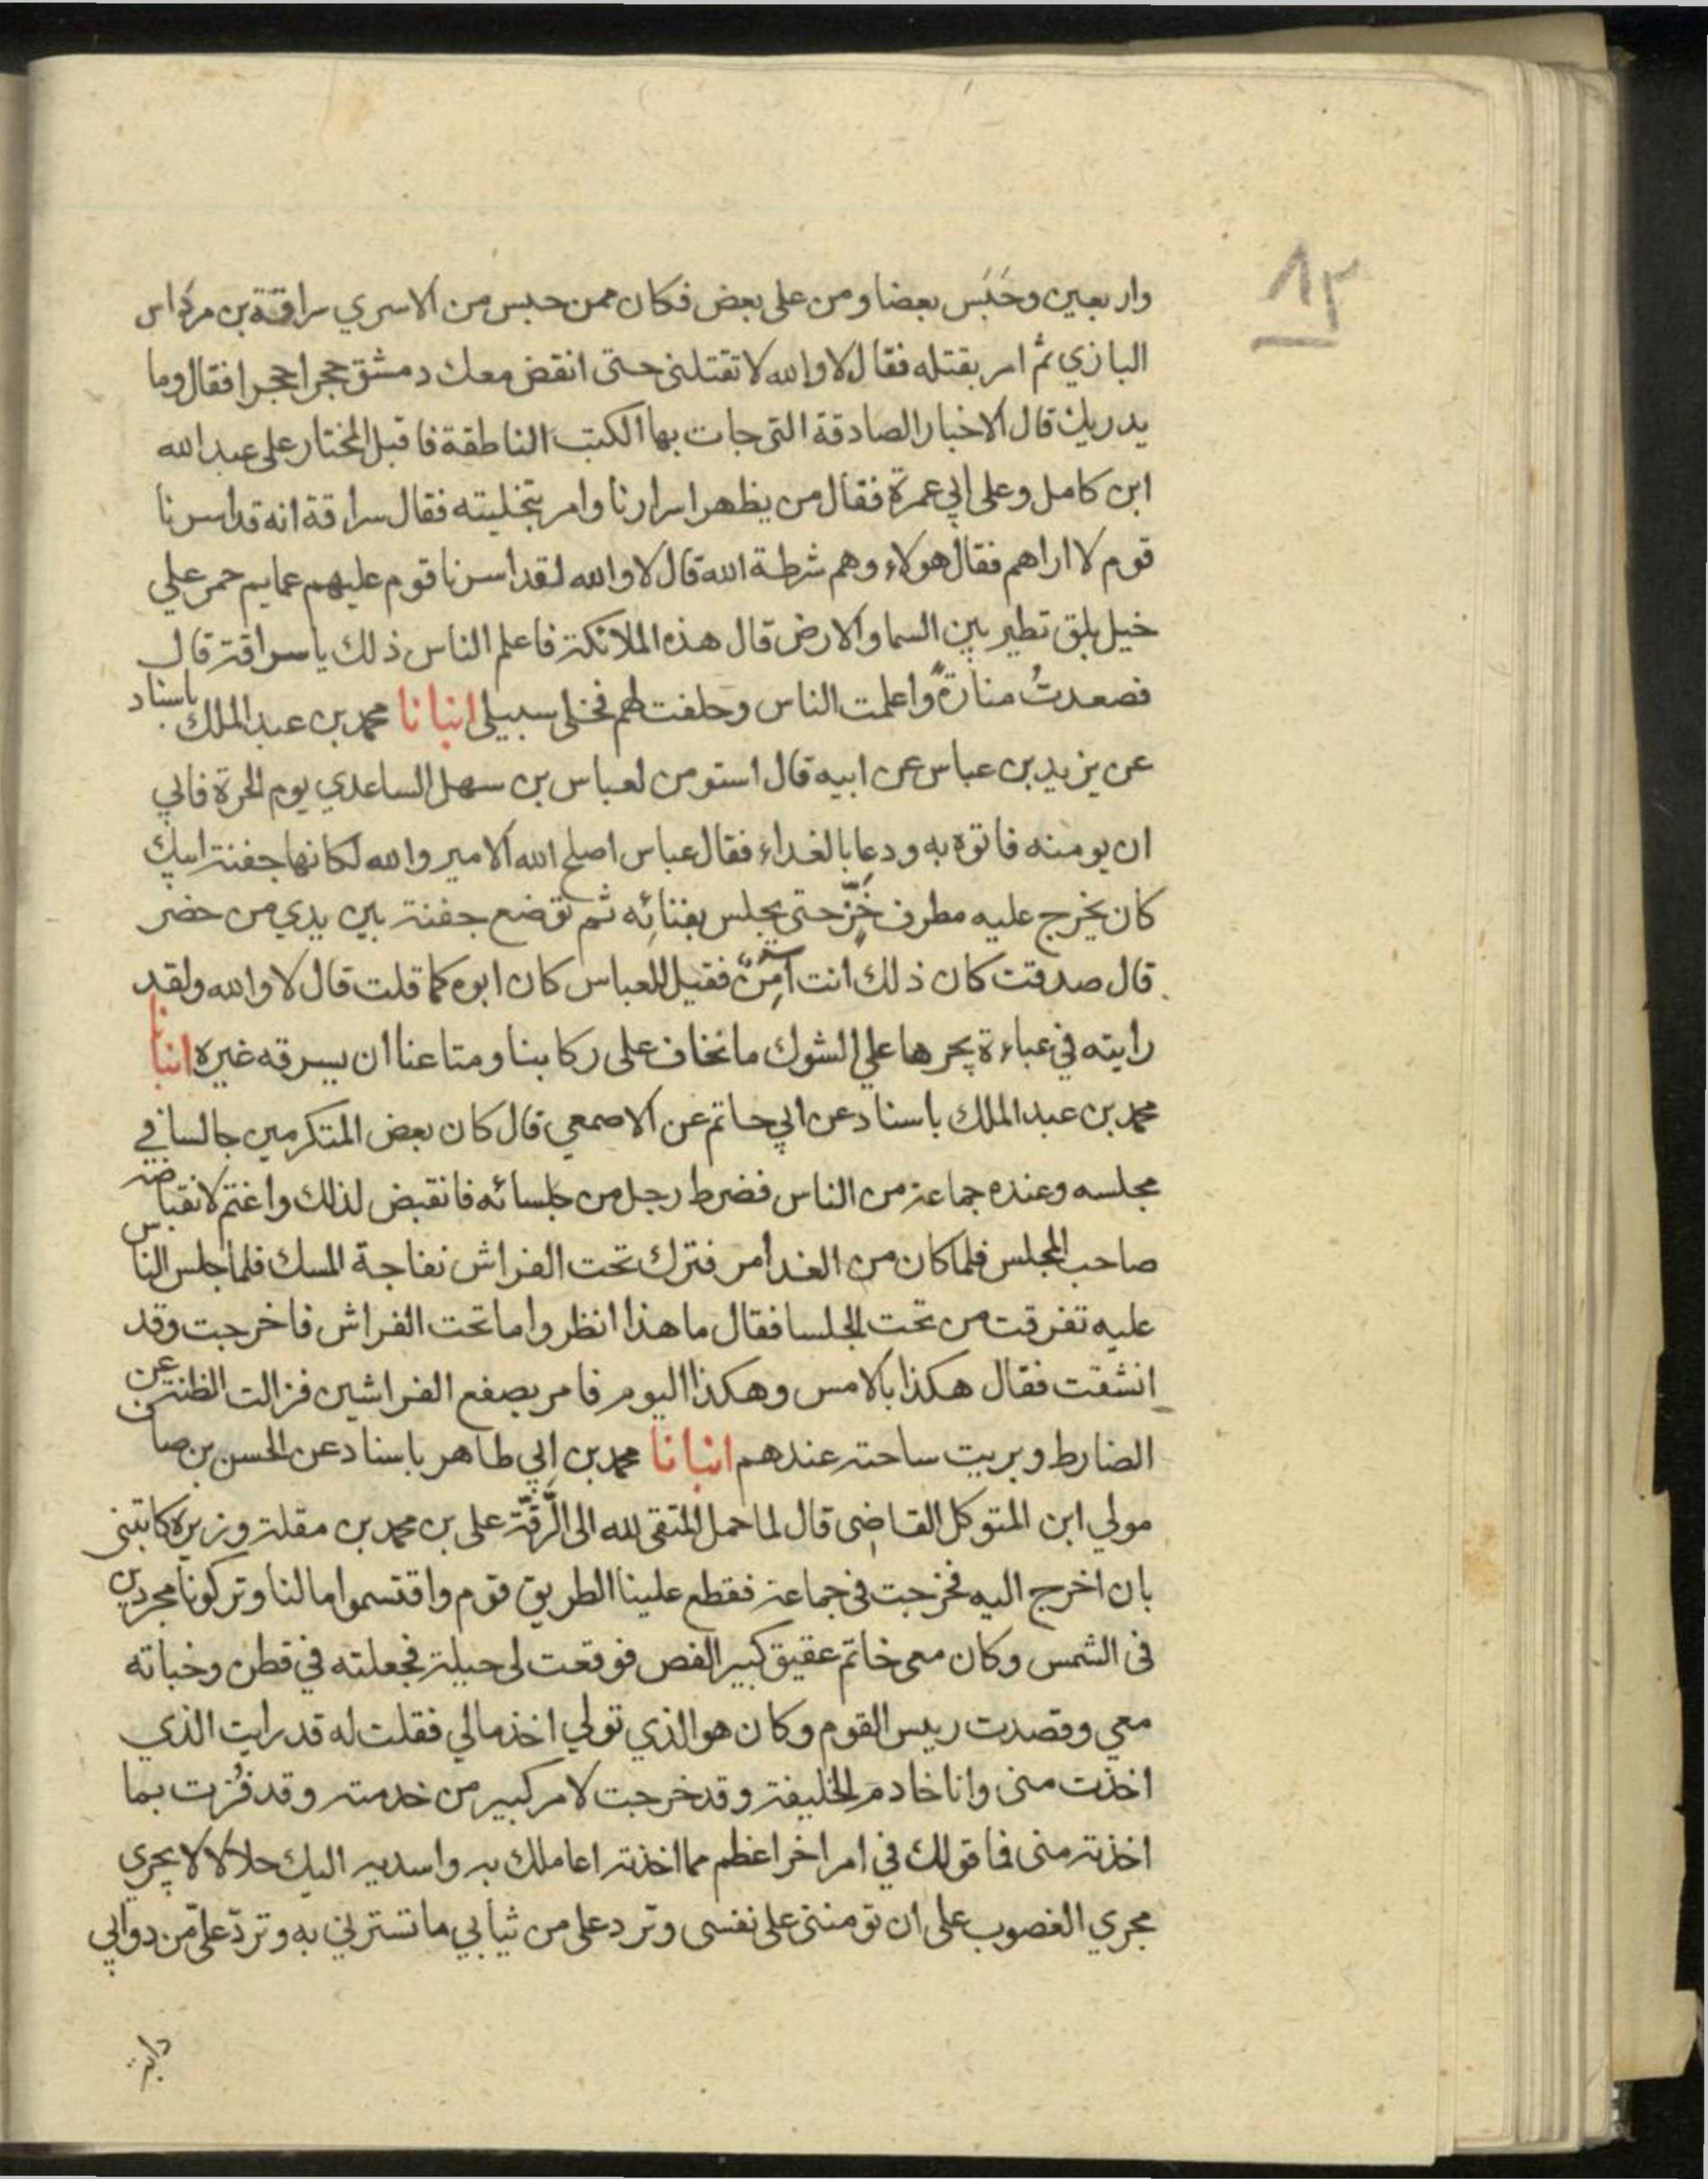 ١٣
واربعين وحَبَس بعضا ومن على بعض فكان ممن حبس من الاسري سراقة بن مرداس
البازي ثم امر بقتله فقال لا والله لا تقتلنى حتى انقض معك دمشق حجرا حجرا فقال وما
يدريك قال الاخبار الصادقة التى جات بها الكتب الناطقة فاقبل المختار على عبد الله
ابن كامل وعلى ابي عمرة فقال من يظهر اسرارنا وامر بتخليته فقال سراقة انه قد اسرنا
قوم لا اراهم فقال هولاء وهم شرطة الله قال لا والله لقد اسرنا قوم عليهم عمايم حمر علي
خيل بلق تطير بين السما والارض قال هذه الملائكة فاعلم الناس ذلك ياسراقة قال
فصعدتُ منارةً واعلمت الناس وحلفت لهم فخلى سبيلى انبانا محمد بن عبد الملك باسناد
عن يزيد بن عباس عن ابيه قال استومن لعباس بن سهل الساعدي يوم الحرة فابي
ان يومنه فاتوه به ودعا بالغداء فقال عباس اصلح الله الامير والله لكانها جفنة ابيك
كان يخرج عليه مطرف خَزّ حتى يجلس بفنائه ثم توضع جفنة بين يدي من حضر
قال صدقت كان ذلك انت آمِنٌ فقيل للعباس كان ابوه كما قلت قال لا والله ولقد
رايته في عباءة يجرها علي الشوك ما نخاف على ركابنا ومتاعنا ان يسرقه غيره انبانا
محمد بن عبد الملك باسناد عن ابي حاتم عن الاصمعي قال كان بعض المتكرمين جالسا في
مجلسه وعنده جماعة من الناس فضرط رجل من جلسائه فانقبض لذلك واغتم لانقباضه
صاحب المجلس فلما كان من الغد امر فترك تحت الفراش نفاجة المسك فلما جلس الناس
عليه تفرقت من تحت الجلسا فقال ما هذا انظروا ما تحت الفراش فاخرجت وقد
انشقت فقال هكذا بالامس وهكذا اليوم فامر بصفع الفراشين فزالت الظنة عن
الضارط وبريت ساحته عندهم انبانا محمد بن ابي طاهر باسناد عن الحسن بن صافى
مولي ابن المتوكل القاضى قال لما حمل المتقى لله الى الرَّقّة على بن محمد بن مقلة وزيره كاتبنى
بان اخرج اليه فخرجت فى جماعة فقطع علينا الطريق قوم واقتسموا مالنا وتركونا مجردين
فى الشمس وكان معى خاتم عقيق كبير الفص فوقعت لى حيلة فجعلته في قطن وخباته
معي وقصدت رييس القوم وكان هو الذي تولي اخذ مالي فقلت له قد رايت الذي
اخذت منى وانا خادم الخليفة وقد خرجت لامر كبير من خدمته وقد فُزت بما
اخذته منى فما قولك في امر اخر اعظم مما اخذته اعاملك به واسديه اليك حلالا لا يجري
مجري الغصوب على ان تومننى على نفسى وترد على من ثيابي ما تسترني به وتردّ علىّ من دوابي
دابة